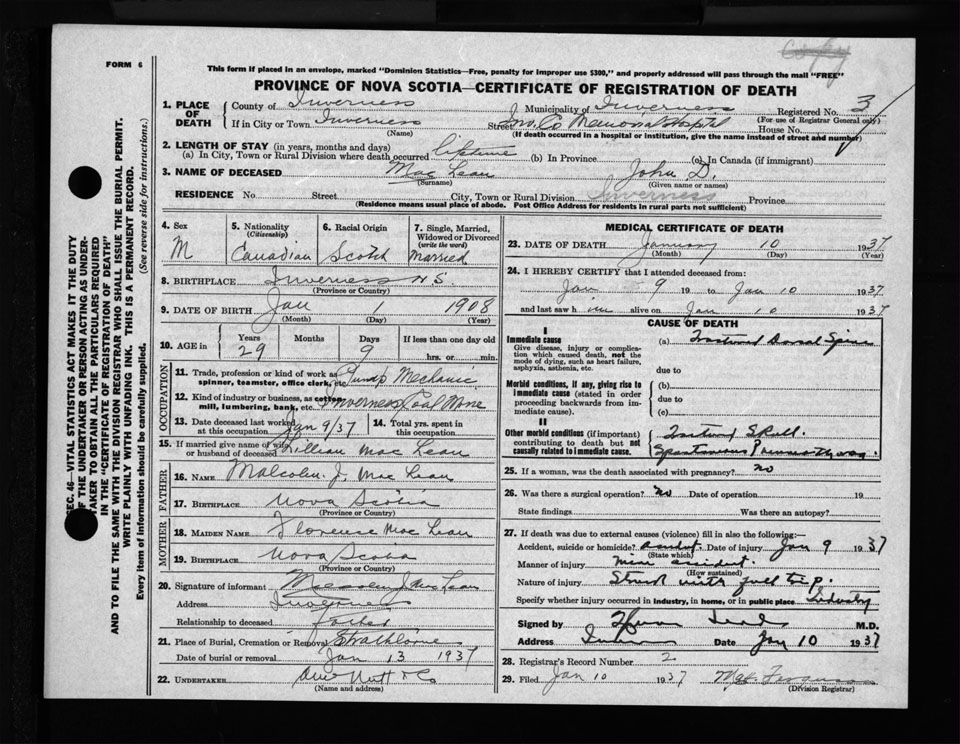 Copy
FORM 6
This form if placed in an envelope, marked "Dominion Statistics—Free, penalty for improper use $300," and properly addressed will pass through the mail "FREE"
PROVINCE OF NOVA SCOTIA—CERTIFICATE OF REGISTRATION OF DEATH
SEC. 46—VITAL STATISTICS ACT MAKES IT THE DUTY
OF THE UNDERTAKER OR PERSON ACTING AS UNDER-
TAKER TO OBTAIN ALL THE PARTICULARS REQUIRED
IN THE "CERTIFICATE OF REGISTRATION OF DEATH"
AND TO FILE THE SAME WITH THE DIVISION REGISTRAR WHO SHALL ISSUE THE BURIAL PERMIT.
WRITE PLAINLY WITH UNFADING INK. THIS IS A PERMANENT RECORD.
Every item of information should be carefully supplied. (See reverse side for instructions.)
1. PLACE OF DEATH
County of Inverness Municipality of Inverness Registered No. 3
(For use of Registrar General only)
If in City or Town Inverness Street Inv. Co. Memorial Hospital House No.
(Name) (If death occurred in a hospital or institution, give the name instead of street and number)
2. LENGTH OF STAY (in years, months and days)
(a) In City, Town or Rural Division where death occurred lifetime (b) In Province (c) In Canada (if immigrant)
3. NAME OF DECEASED Mac Lean John D.
(Surname) (Given name or names)
RESIDENCE No Street City, Town or Rural Division Inverness Province
(Residence means usual place of abode. Post Office Address for residents in rural parts not sufficient)
4. Sex M
5. Nationality (Citizenship) Canadian
6. Racial Origin Scotch
7. Single, Married, Widowed or Divorced (write the word) Married
8. BIRTHPLACE Inverness N.S.
(Province or Country)
9. DATE OF BIRTH Jan 1 1908
(Month) (Day) (Year)
10. AGE in Years 29 Months Days 9 If less than one day old
hrs. or min.
OCCUPATION
11. Trade, profession or kind of work as Pump Mechanic
spinner, teamster, office clerk, etc.
12. Kind of industry or business, as cotton mill, lumbering, bank, etc. Inverness Coal Mine
13. Date deceased last worked at this occupation Jan 9/37
14. Total yrs. spent in this occupation
15. If married give name of wife or husband of deceased Lillian Mac Lean
FATHER
16. NAME Malcolm J. Mac Lean
17. BIRTHPLACE Nova Scotia
(Province or Country)
MOTHER
18. MAIDEN NAME Florence Mac Lean
19. BIRTHPLACE Nova Scotia
(Province or Country)
20. Signature of informant Malcolm J. Mac Lean
Address Inverness
Relationship to deceased Father
21. Place of Burial, Cremation or Removal Strathlorne
Date of burial or removal Jan 13 1937
22. UNDERTAKER
(Name and address)
MEDICAL CERTIFICATE OF DEATH
23. DATE OF DEATH January 10 1937
(Month) (Day) (Year)
24. I HEREBY CERTIFY that I attended deceased from:
Jan 9 19 to Jan 10 1937
and last saw h im alive on Jan 10 1937
CAUSE OF DEATH
I
Immediate cause
Give disease, injury or complication which caused death, not the mode of dying, such as heart failure, asphyxia, asthenia, etc.
(a) Fractured Dorsal Spine
due to
Morbid conditions, if any, giving rise to immediate cause (stated in order proceeding backwards from immediate cause).
(b)
due to
(c)
II
Other morbid conditions (if important) contributing to death but not causally related to immediate cause.
Fractured Skull
Spontaneous Pneumothorax
25. If a woman, was the death associated with pregnancy? no
26. Was there a surgical operation? no Date of operation 19
State findings Was there an autopsy?
27. If death was due to external causes (violence) fill in also the following:—
Accident, suicide or homicide? accident. Date of injury Jan 9 1937
(State which)
Manner of injury mine accident.
(How sustained)
Nature of injury Struck with
Specify whether injury occurred in industry, in home, or in public place Industry
Signed by M.D.
Address Date Jan 10 1937
28. Registrar's Record Number 2
29. Filed Jan 10 1937
(Division Registrar)